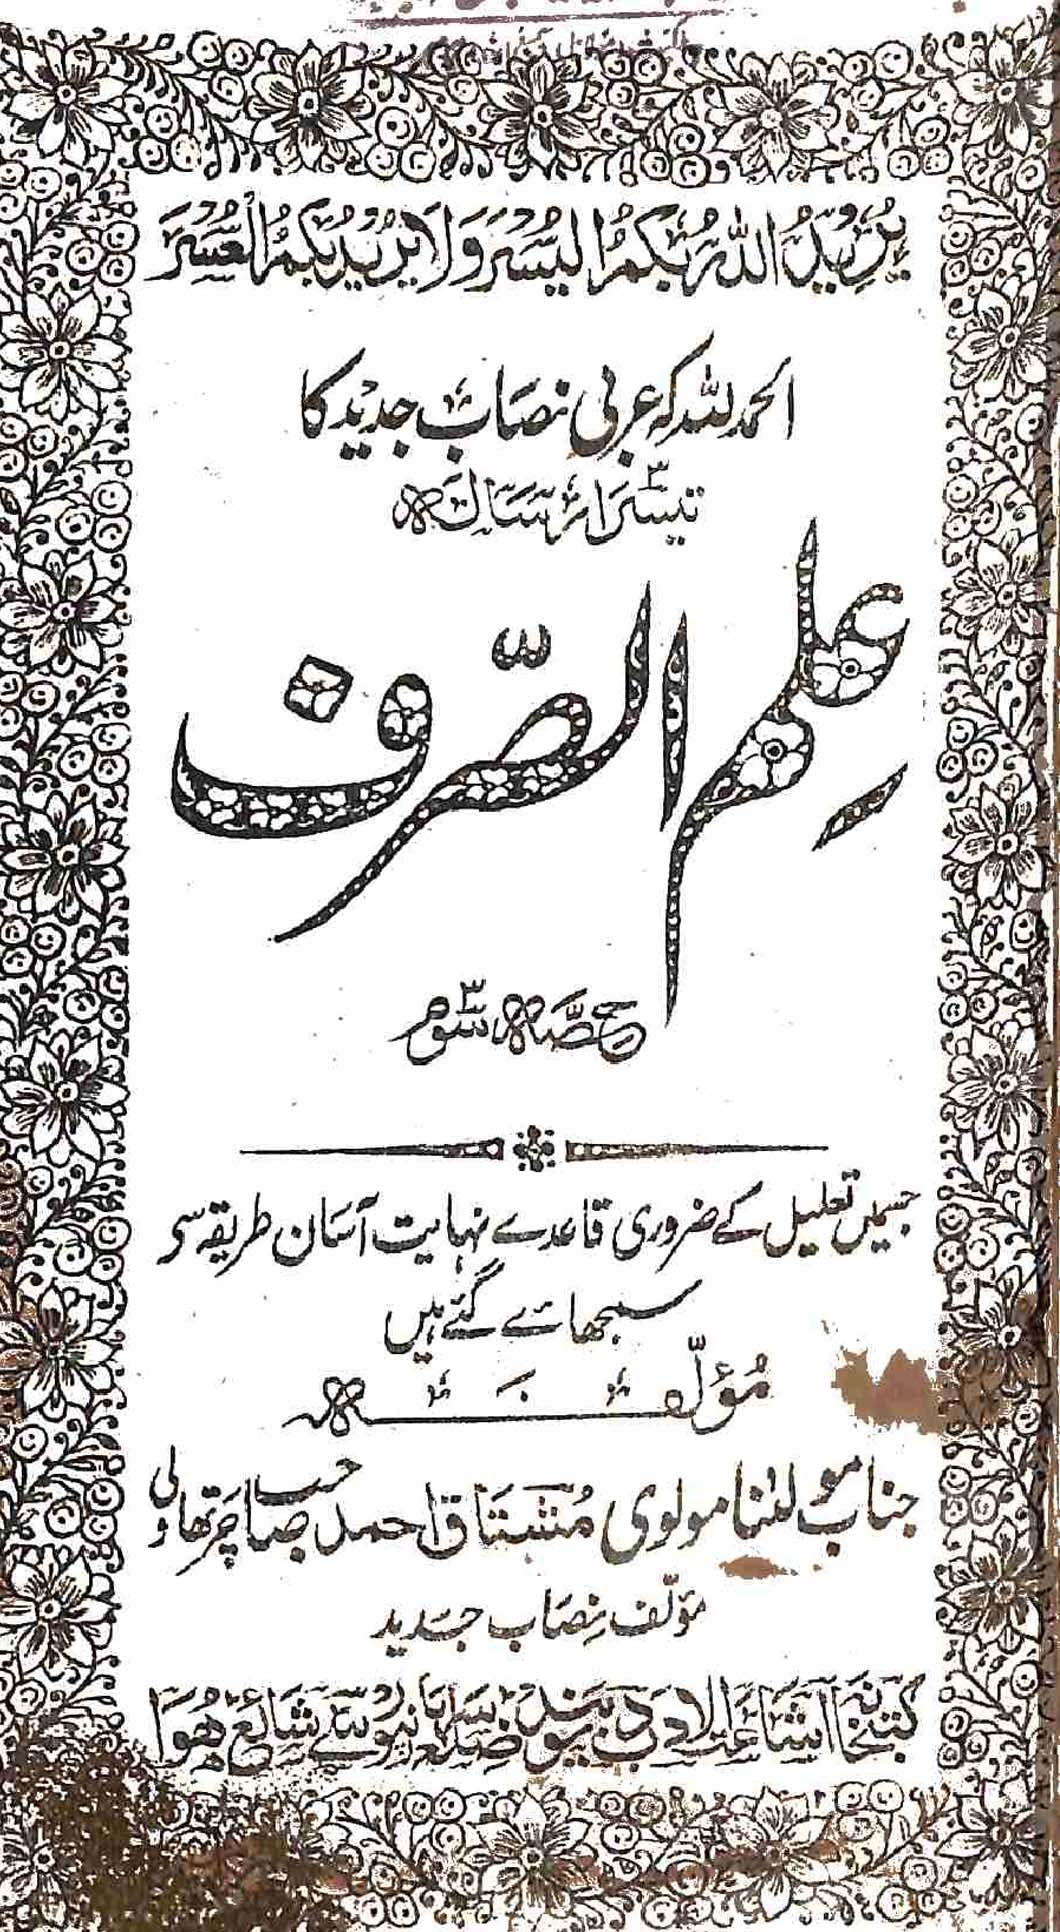 يُرِيْدُ اللّٰهُ بِكُمُ الْيُسْرَ وَلَا يُرِيْدُ بِكُمُ الْعُسْرَ
الحمد للہ کہ عربی نصاب جدید کا
تیسرا رسالہ
عِلم الصّرف
حصّہ سوم
جسمیں تعلیل کے ضروری قاعدے نہایت آسان طریقہ سی
سمجھائے گئے ہیں
مُؤلّفہ
جناب مولٰنا مولوی مُشتاق احمد صاحب چرتھاولی
مؤلّف نِصاب جدید
کتبخانہ اشاعت دیوبند ضلع سہارنپور سے شائع ہوا